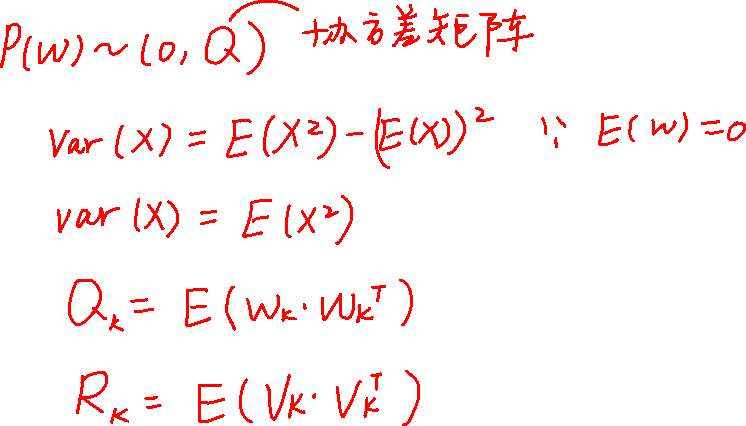 P(w)~(0, Q) 协方差矩阵
Var(X) = E(X²)-(E(X))² ∵ E(w)=0
var(X) = E(X²)
Qₖ = E(wₖ·wₖᵀ)
Rₖ = E(Vₖ·Vₖᵀ)